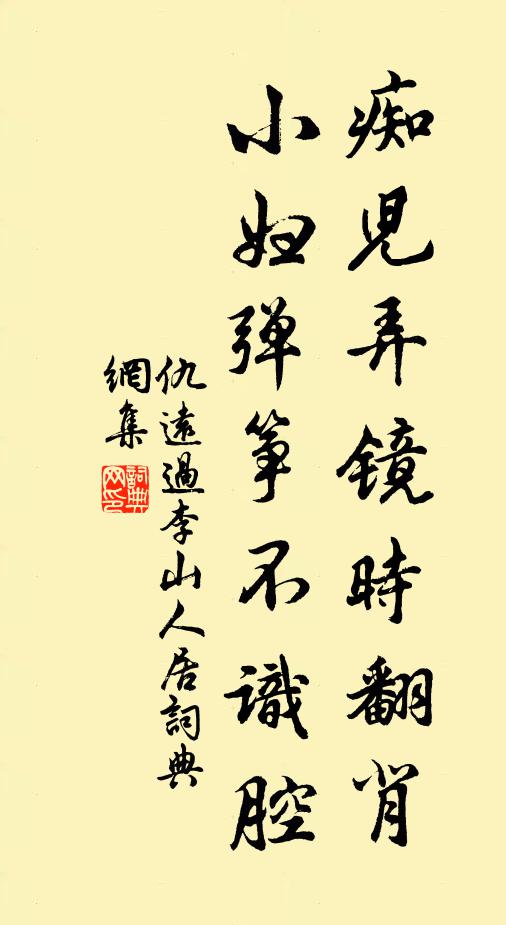 痴児弄镜時翻背
小妇弹筝不識腔
仇遠過李山人居詞典
網集
詞典網印